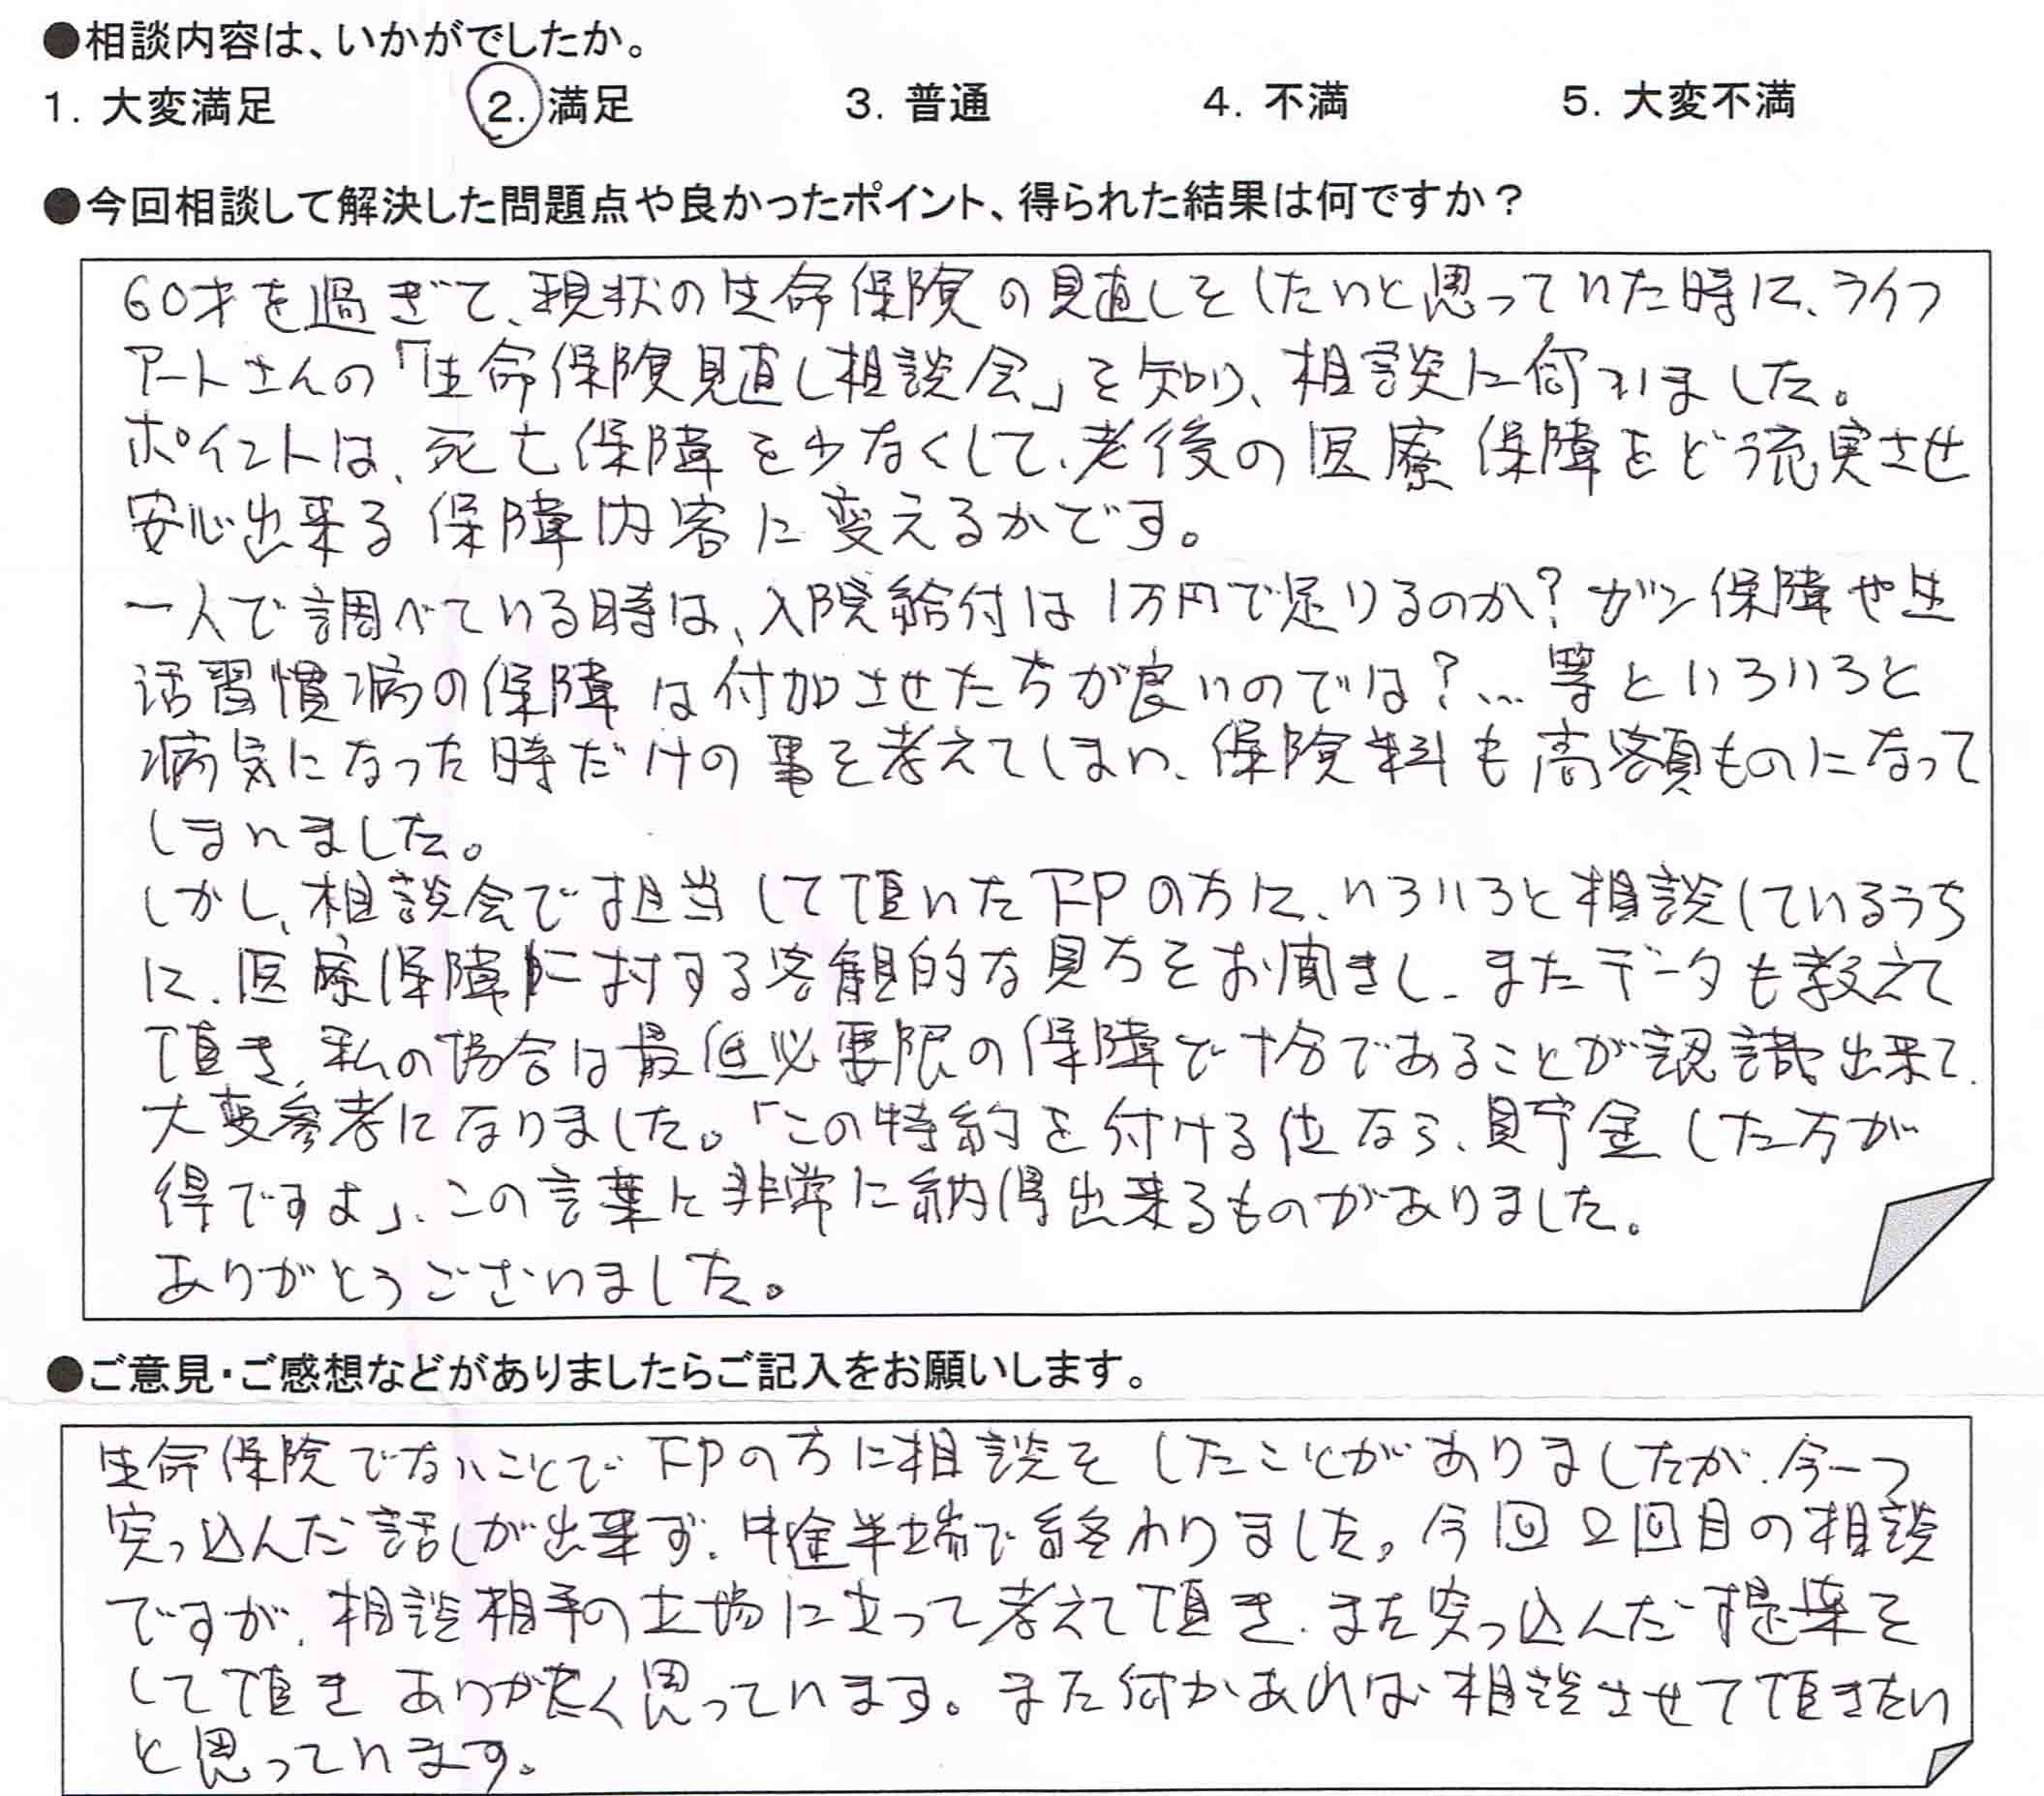 ●相談内容は、いかがでしたか。
1. 大変満足 2. 満足 3. 普通 4. 不満 5. 大変不満
●今回相談して解決した問題点や良かったポイント、得られた結果は何ですか？
60才を過ぎて、現状の生命保険の見直しをしたいと思っていた時に、ライフ
アートさんの「生命保険見直し相談会」を知り、相談に伺いました。
ポイントは、死亡保障を少なくして、老後の医療保障をどう充実させ
安心出来る保障内容に変えるかです。
一人で調べている時は、入院給付は1万円で足りるのか？ガン保障や生
活習慣病の保障は付加させた方が良いのでは？…等といろいろと
病気になった時だけの事を考えてしまい、保険料も高額ものになって
しまいました。
しかし、相談会で担当して頂いたFPの方に、いろいろと相談しているうち
に、医療保障に対する客観的な見方をお聞きし、またデータも教えて
頂き、私の場合は最低必要限の保障で十分であることが認識出来て、
大変参考になりました。「この特約を付ける位なら、貯金した方が
得ですよ」、この言葉に非常に納得出来るものがありました。
ありがとうございました。
●ご意見・ご感想などがありましたらご記入をお願いします。
生命保険でないことでFPの方に相談をしたことがありましたが、今一つ
突っ込んだ話しが出来ず、中途半端で終わりました。今回2回目の相談
ですが、相談相手の立場に立って考えて頂き、また突っ込んだ提案を
して頂きありがたく思っています。また何かあれば相談させて頂きたい
と思っています。